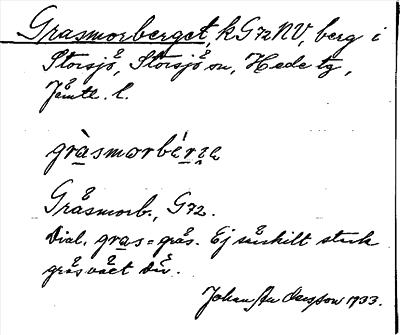 Grasmorberget, k G72NV, berg i
Storsjö, Storsjö sn, Hede tg,
Jämtl. l.
gràsmorbérze
Gråsmorb., G72.
Dial. gras = gräs. Ej särskilt stark
gräsväxt där.
Johan Andersson 1933.